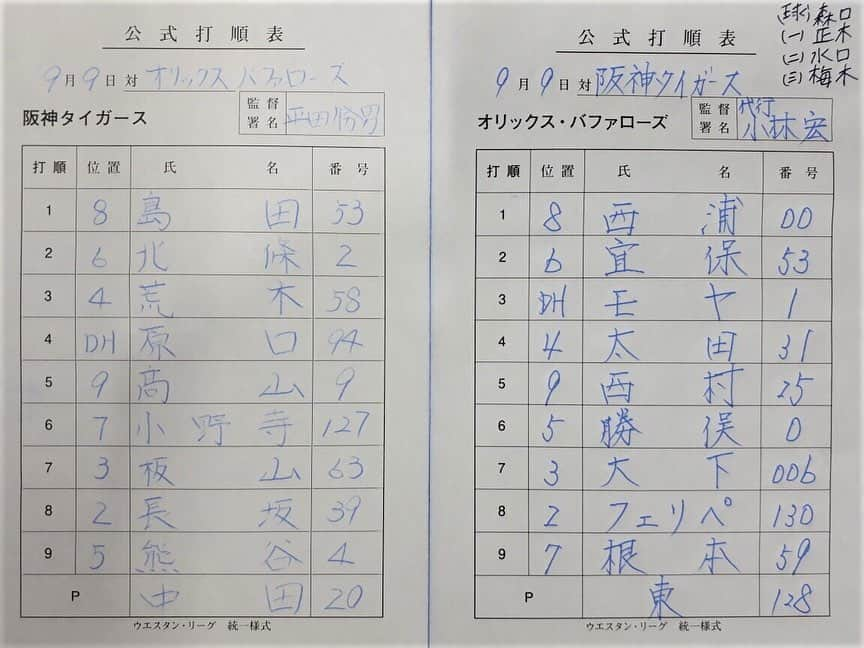 公式打順表
9月9日対オリックスバファローズ
阪神タイガース
監督署名 平田勝男
打順 位置 氏名 番号
1 8 島田 53
2 6 北條 2
3 4 荒木 58
4 DH 原口 94
5 9 高山 9
6 7 小野寺 127
7 3 板山 63
8 2 長坂 39
9 5 熊谷 4
P 中田 20
ウエスタン・リーグ 統一様式
(球) 森口
(一) 正木
(二) 水口
(三) 梅木
公式打順表
9月9日対阪神タイガース
オリックス・バファローズ
監督署名 代行 小林宏
打順 位置 氏名 番号
1 8 西浦 00
2 6 宜保 53
3 DH モヤ 1
4 4 太田 31
5 9 西村 25
6 5 勝俣 0
7 3 大下 006
8 2 フェリペ 130
9 7 根本 59
P 東 128
ウエスタン・リーグ 統一様式